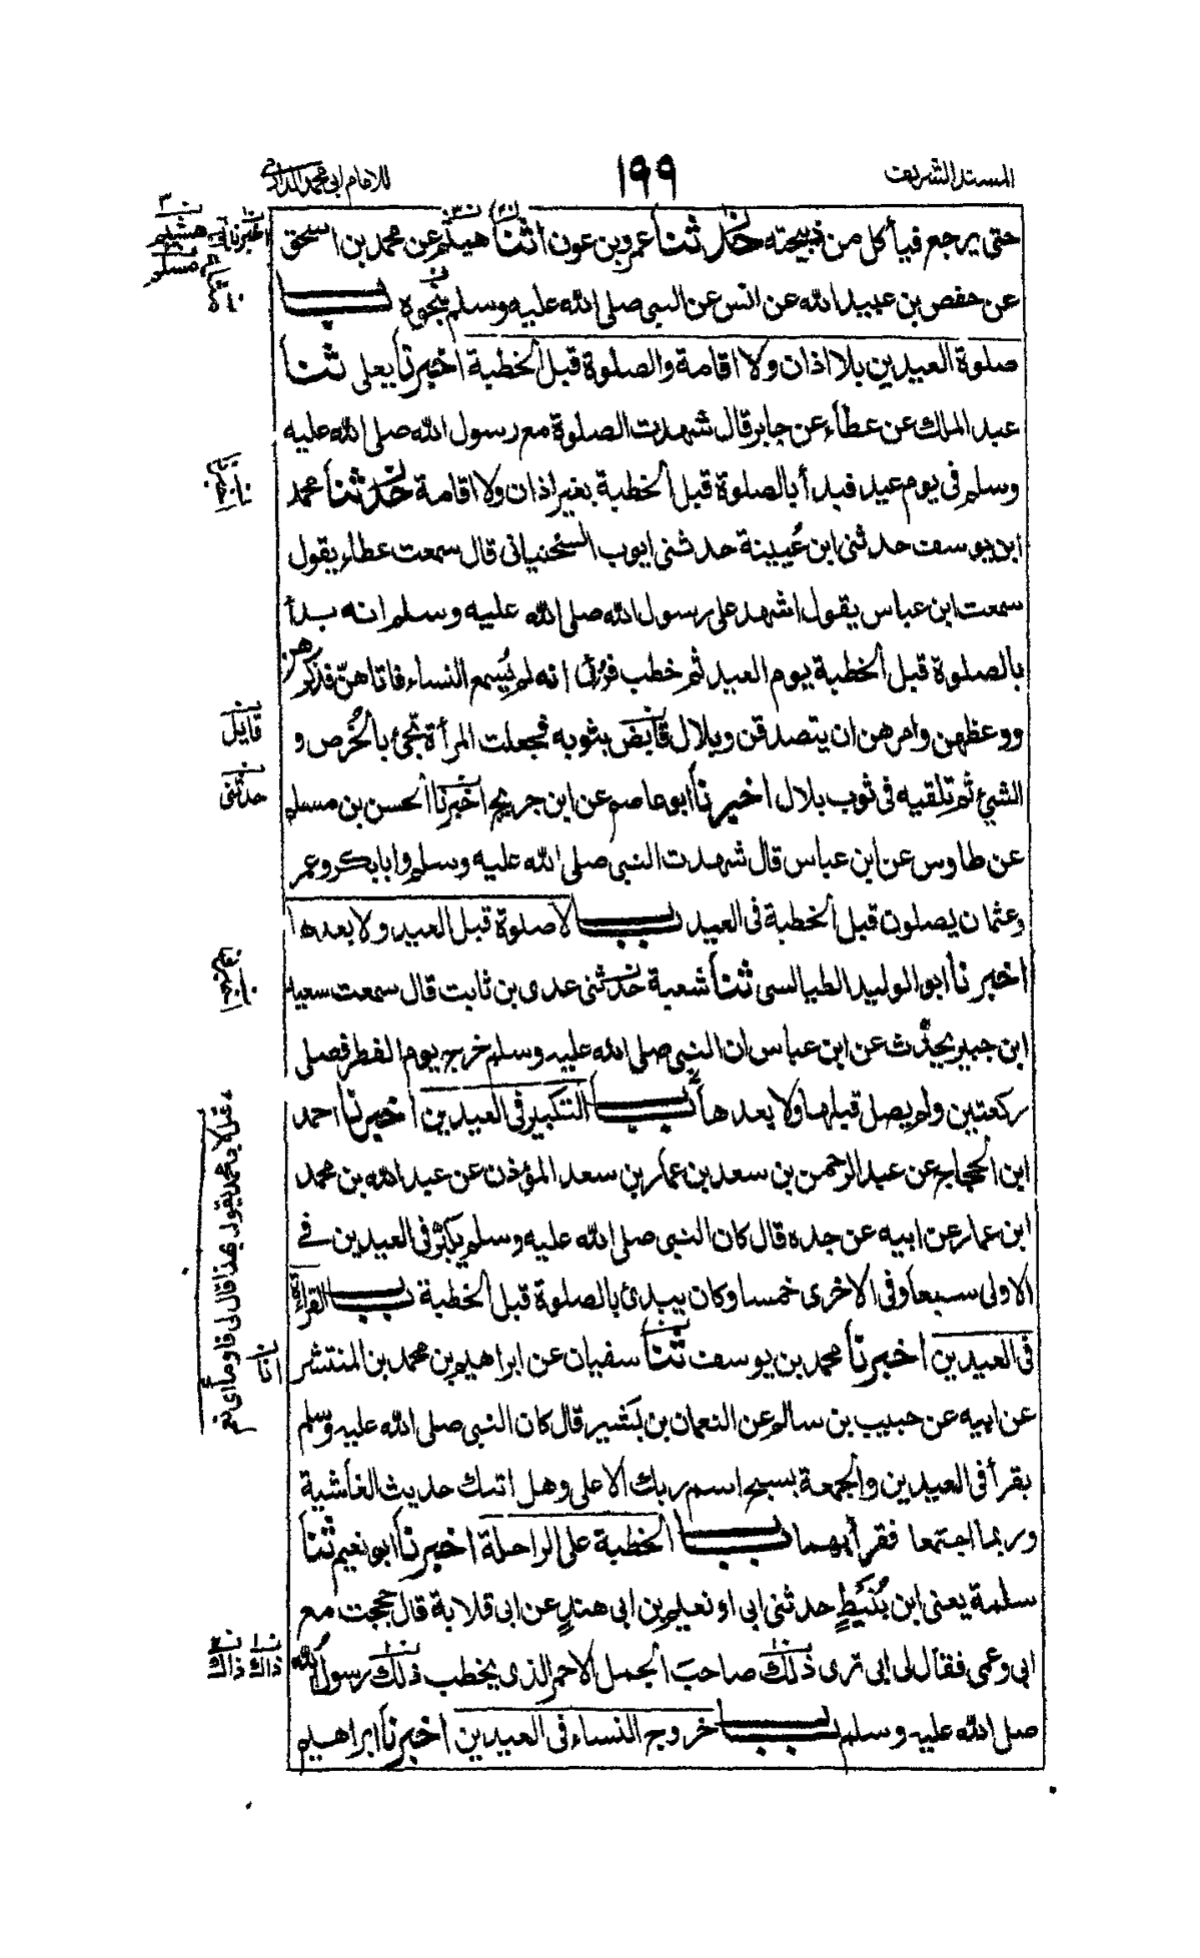 المسند الشريف ١٩٩ للامام ابی محمد الدارمی
حتى يرجع فيأكل من ذبيحته حدثنا عمرو بن عون اثنا هيثم عن محمد بن اسحق
عن حفص بن عبيد الله عن انس عن النبی صلى الله عليه وسلم بنحوه باب
صلوة العيدين بلا اذان ولا اقامة والصلوة قبل الخطبة اخبرنا يعلى ثنا
عبد الملك عن عطاء عن جابر قال شهدت الصلوة مع رسول الله صلى الله عليه
وسلم فی يوم عيد فبدأ بالصلوة قبل الخطبة بغير اذان ولا اقامة حدثنا محمد
ابن يوسف حدثنی ابن عُيينة حدثنی ايوب السختيانی قال سمعت عطاء يقول
سمعت ابن عباس يقول اشهد على رسول الله صلى الله عليه وسلم انه بدأ
بالصلوة قبل الخطبة يوم العيد ثم خطب فرُئی انه لم يُسمع النساء فاتاهنّ فذكرهن
ووعظهن وامرهن ان يتصدقن وبلال قابض بثوبه فجعلت المرأة تجئ بالخُرص و
الشیء ثم تلقيه فی ثوب بلال اخبرنا ابو عاصم عن ابن جريج اخبرنا الحسن بن مسلم
عن طاوس عن ابن عباس قال شهدت النبی صلى الله عليه وسلم وابا بكر وعمر
وعثمان يصلون قبل الخطبة فی العيد باب لا صلوة قبل العيد ولا بعدها
اخبرنا ابو الوليد الطيالسی ثنا شعبة حدثنی عدی بن ثابت قال سمعت سعيد
ابن جبير يحدّث عن ابن عباس ان النبی صلى الله عليه وسلم خرج يوم الفطر فصلى
ركعتين ولم يصل قبلها ولا بعدها باب التكبير فی العيدين اخبرنا احمد
ابن الحجاج عن عبد الرحمن بن سعد بن عمار بن سعد المؤذن عن عبد الله بن محمد
ابن عمار عن ابيه عن جده قال كان النبی صلى الله عليه وسلم يكبّر فی العيدين فے
الاولى سبعا وفی الاخرى خمسا وكان يبدئ بالصلوة قبل الخطبة باب القراءة
فی العيدين اخبرنا محمد بن يوسف ثنا سفيان عن ابراهيم بن محمد بن المنتشر
عن ابيه عن حبيب بن سالم عن النعمان بن بَشير قال كان النبی صلى الله عليه وسلم
يقرأ فی العيدين والجمعة بسبح اسم ربك الاعلى وهل اتىك حديث الغاشية
وربما اجتمعا فقرأ بهما باب الخطبة على الراحلة اخبرنا ابو نعيم ثنا
سلمة يعنی ابن نُبَيْطٍ حدثنی ابی او نعيم بن ابی هندٍ عن ابی قلابة قال حججت مع
ابی وعمی فقال لی ابی ترى ذلك صاحبَ الجمل الاحمر الذی يخطب ذلك رسول الله
صلى الله عليه وسلم باب خروج النساء فی العيدين اخبرنا ابراهيم
اخبرنا
هشيم
قايل
حدثنی
قيل لابی محمد يقول بهذا قال لی فاومأ ای نعم
انا
ذاك ذاك